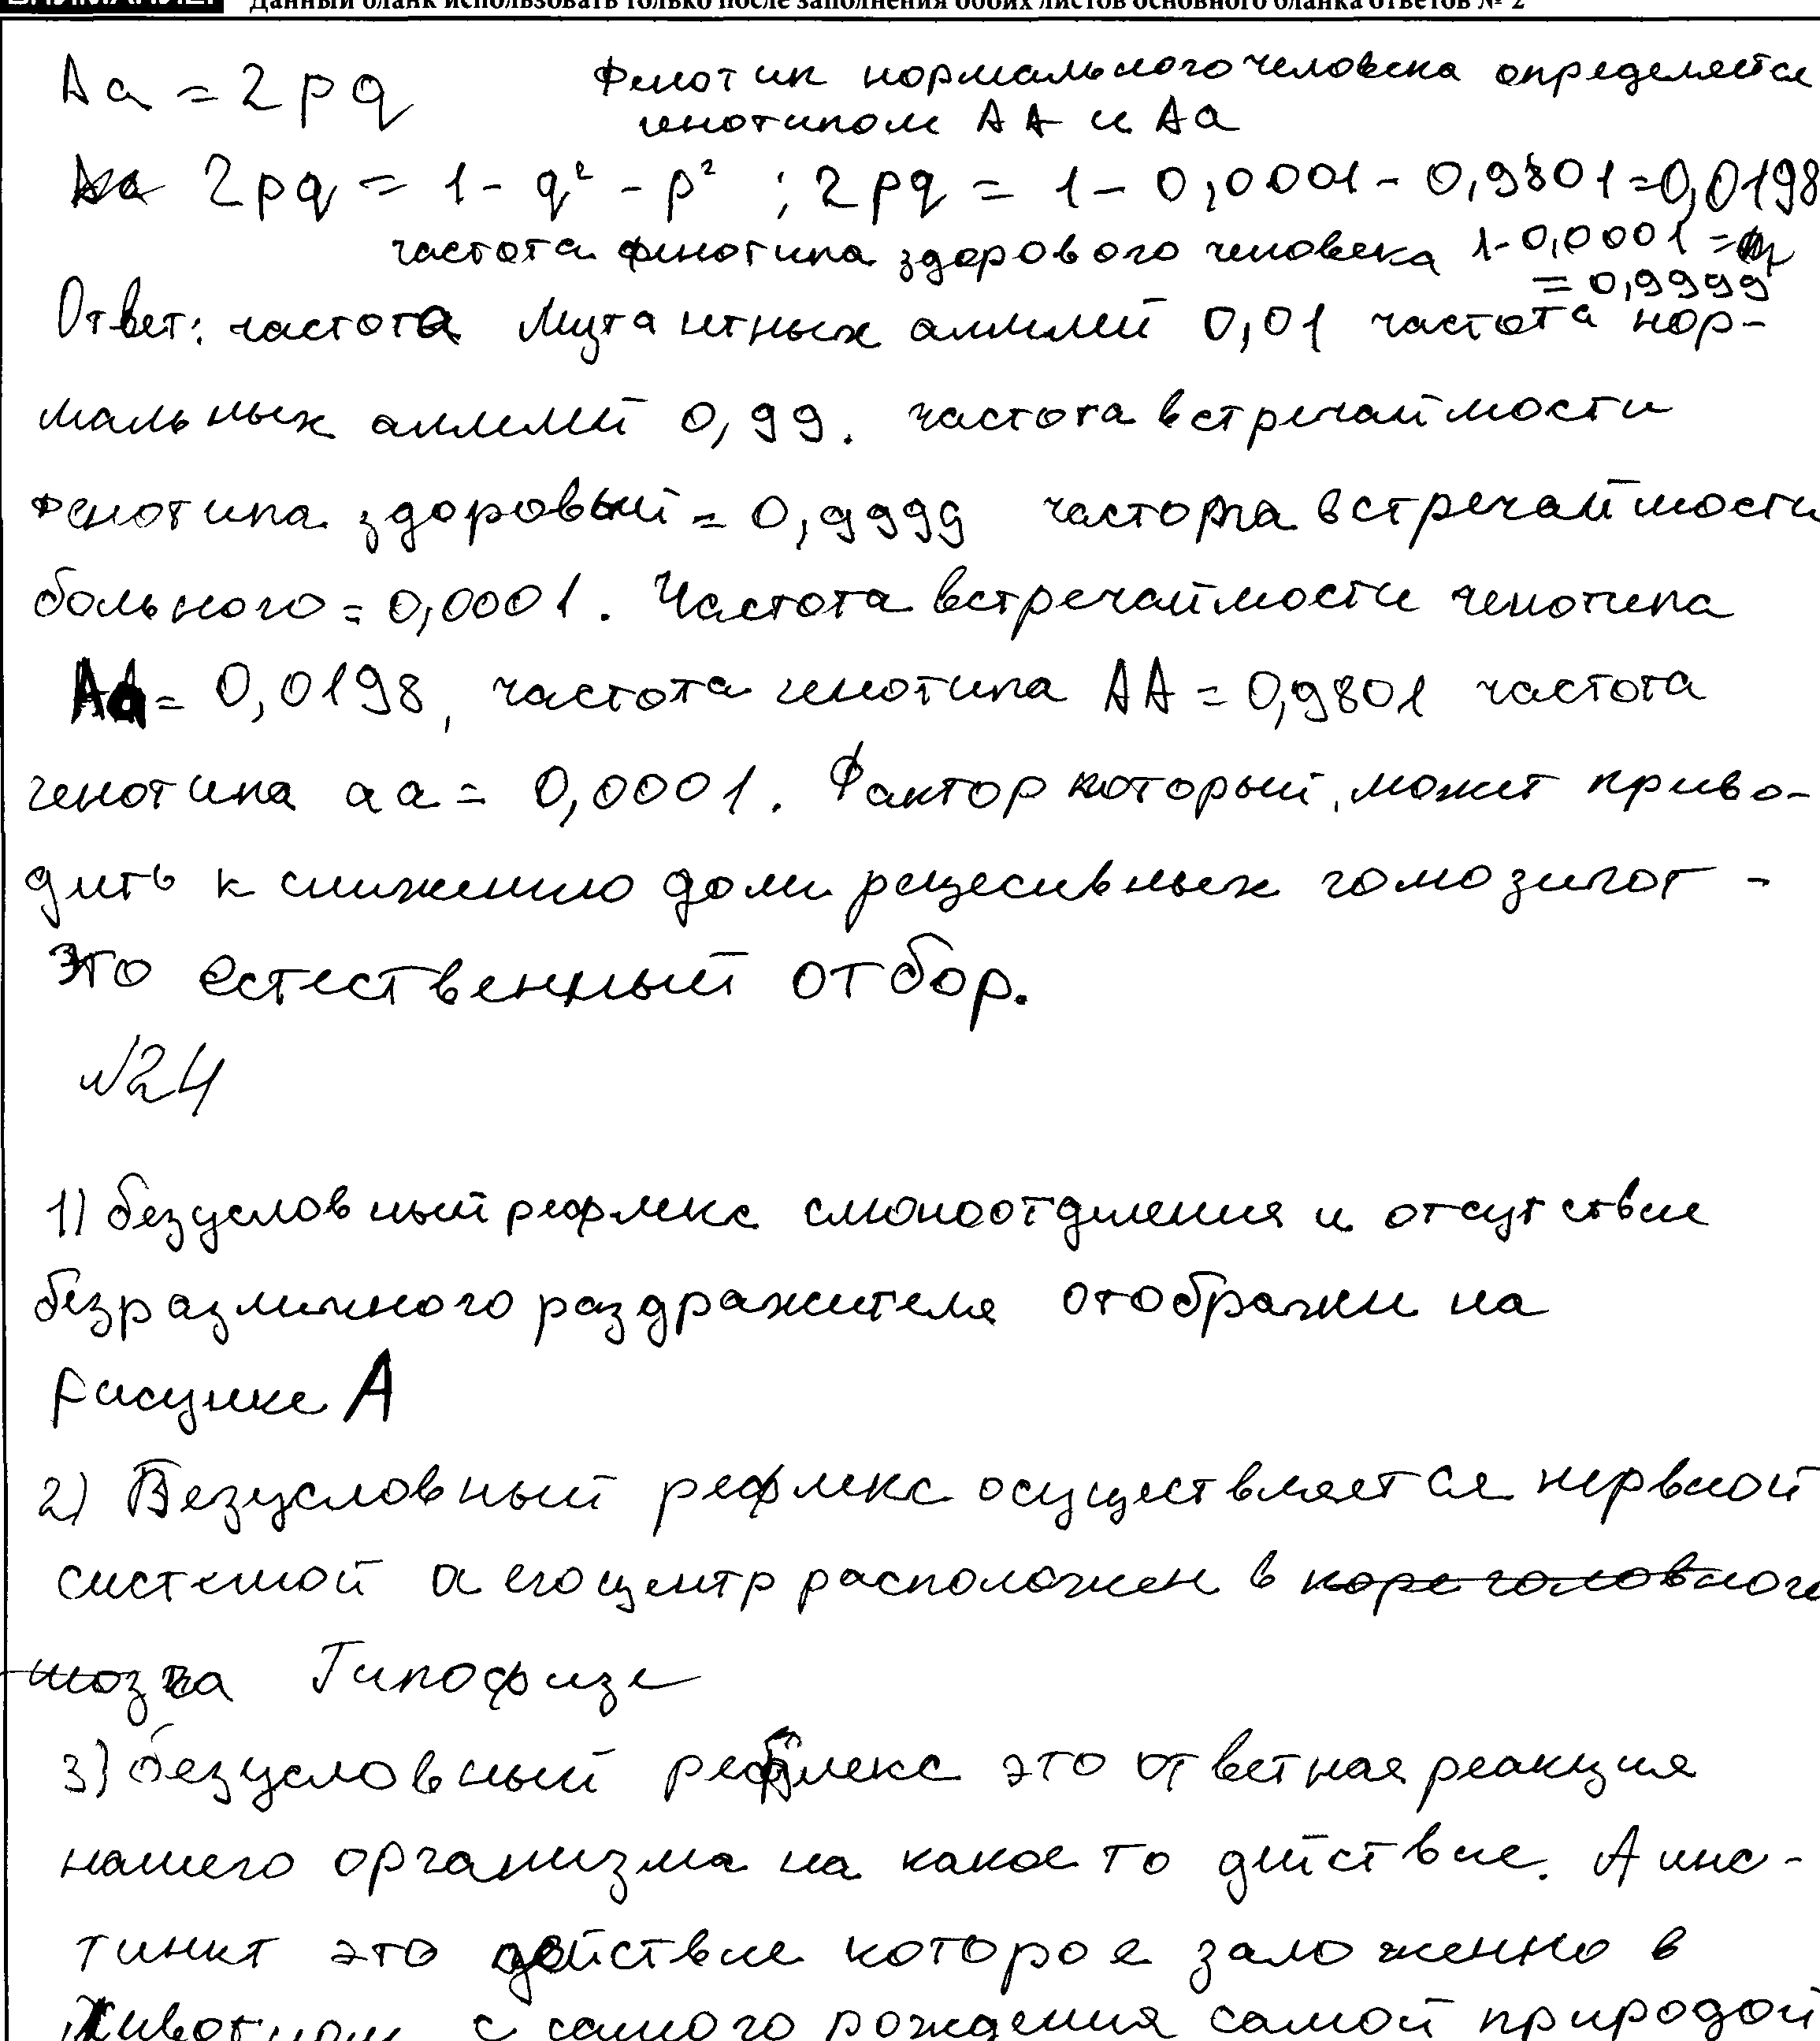 Данный бланк использовать только после заполнения обоих листов основного бланка ответов № 2
Аа = 2pq
Фенотип нормального человека определяется
генотипом АА и Аа
2pq = 1 - q² - p² ; 2pq = 1 - 0,0001 - 0,9801 = 0,0198
частота фенотипа здорового человека 1-0,0001 =
= 0,9999
Ответ: частота мутантных аллелей 0,01 частота нор-
мальных аллелей 0,99. частота встречаймости
фенотипа здоровый = 0,9999 частота встречаймости
больного = 0,0001. Частота встречаймости генотипа
Аа = 0,0198, частота генотипа АА = 0,9801 частота
генотипа аа = 0,0001. Фактор который, может приво-
дить к снижению доли рецесивных гомозигот -
это естественный отбор.
№24
1) безусловный рефлекс слюноотделения и отсутствие
безразличного раздражителя отображен на
рисунке А
2) Безусловный рефлекс осуществляется нервной
системой а его центр расположен в коре головного
мозга Гипофизе
3) безусловный рефлекс это ответная реакция
нашего организма на какое то действие. А инс-
тинкт это действие которое заложенно в
животном с самого рождения самой природой